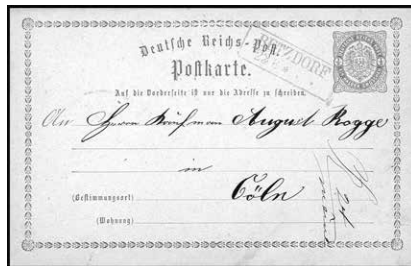 Deutsche Reichs-Post.
Postkarte.
Auf die Vorderseite ist nur die Adresse zu schreiben.
An Herrn Kaufmann August Rogge
in
(Bestimmungsort) Cöln
(Wohnung)